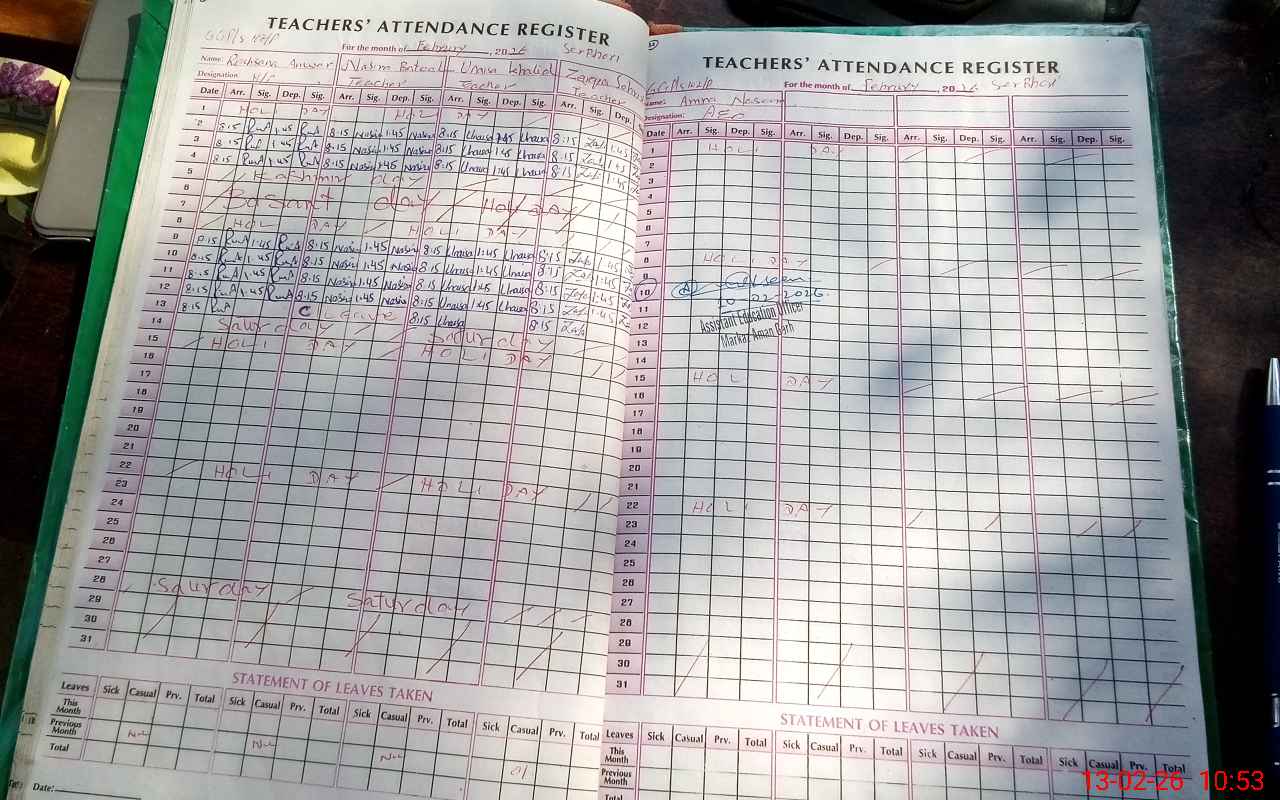 TEACHERS' ATTENDANCE REGISTER
For the month of Februry, 2026
Name: Anwar Nasim Umra Khalid
Designation H/P Teacher Teacher Teacher
Date Arr. Sig. Dep. Sig. Arr. Sig. Dep. Sig. Arr. Sig. Dep. Sig. Arr. Sig. Dep. Sig.
1 HOLI DAY HOLI DAY
2 8:15 1:45 8:15 Nasim 1:45 Nasim 8:15 1:45 8:15 1:45
3 8:15 1:45 8:15 Nasim 1:45 Nasim 8:15 1:45 8:15 1:45
4 8:15 1:45 8:15 Nasim 1:45 Nasim 8:15 1:45 8:15 1:45
5 Kashmir day
6 Basant day HOLI DAY
7
8 HOLI DAY HOLI DAY
9 8:15 1:45 8:15 Nasim 1:45 Nasim 8:15 1:45 8:15 1:45
10 8:15 1:45 8:15 Nasim 1:45 Nasim 8:15 1:45 8:15 1:45
11 8:15 1:45 8:15 Nasim 1:45 Nasim 8:15 1:45 8:15 1:45
12 8:15 1:45 8:15 Nasim 1:45 Nasim 8:15 1:45 8:15 1:45
13 8:15 C Leave 8:15 8:15
14 Saturday Saturday
15 HOLI DAY HOLI DAY
16
17
18
19
20
21
22 HOLI DAY HOLI DAY
23
24
25
26
27
28 Saturday Saturday
29
30
31
STATEMENT OF LEAVES TAKEN
Leaves Sick Casual Prv. Total Sick Casual Prv. Total Sick Casual Prv. Total Sick Casual Prv. Total
This Month
Previous Month Nil Nil Nil 01
Total
Date:
TEACHERS' ATTENDANCE REGISTER
For the month of Februry, 2026
Name: Amna Naseem
Designation: AEO
Date Arr. Sig. Dep. Sig. Arr. Sig. Dep. Sig. Arr. Sig. Dep. Sig. Arr. Sig. Dep. Sig.
1 HOLI DAY
2
3
4
5
6
7
8 HOLI DAY
9
10
10-02-2026
11
Assistant Education Officer
12
Markaz Aman Garh
13
14
15 HOLI DAY
16
17
18
19
20
21
22 HOLI DAY
23
24
25
26
27
28
29
30
31
STATEMENT OF LEAVES TAKEN
Leaves Sick Casual Prv. Total Sick Casual Prv. Total Sick Casual Prv. Total Sick Casual Prv. Total
This Month
Previous Month
Total
13-02-26 10:53